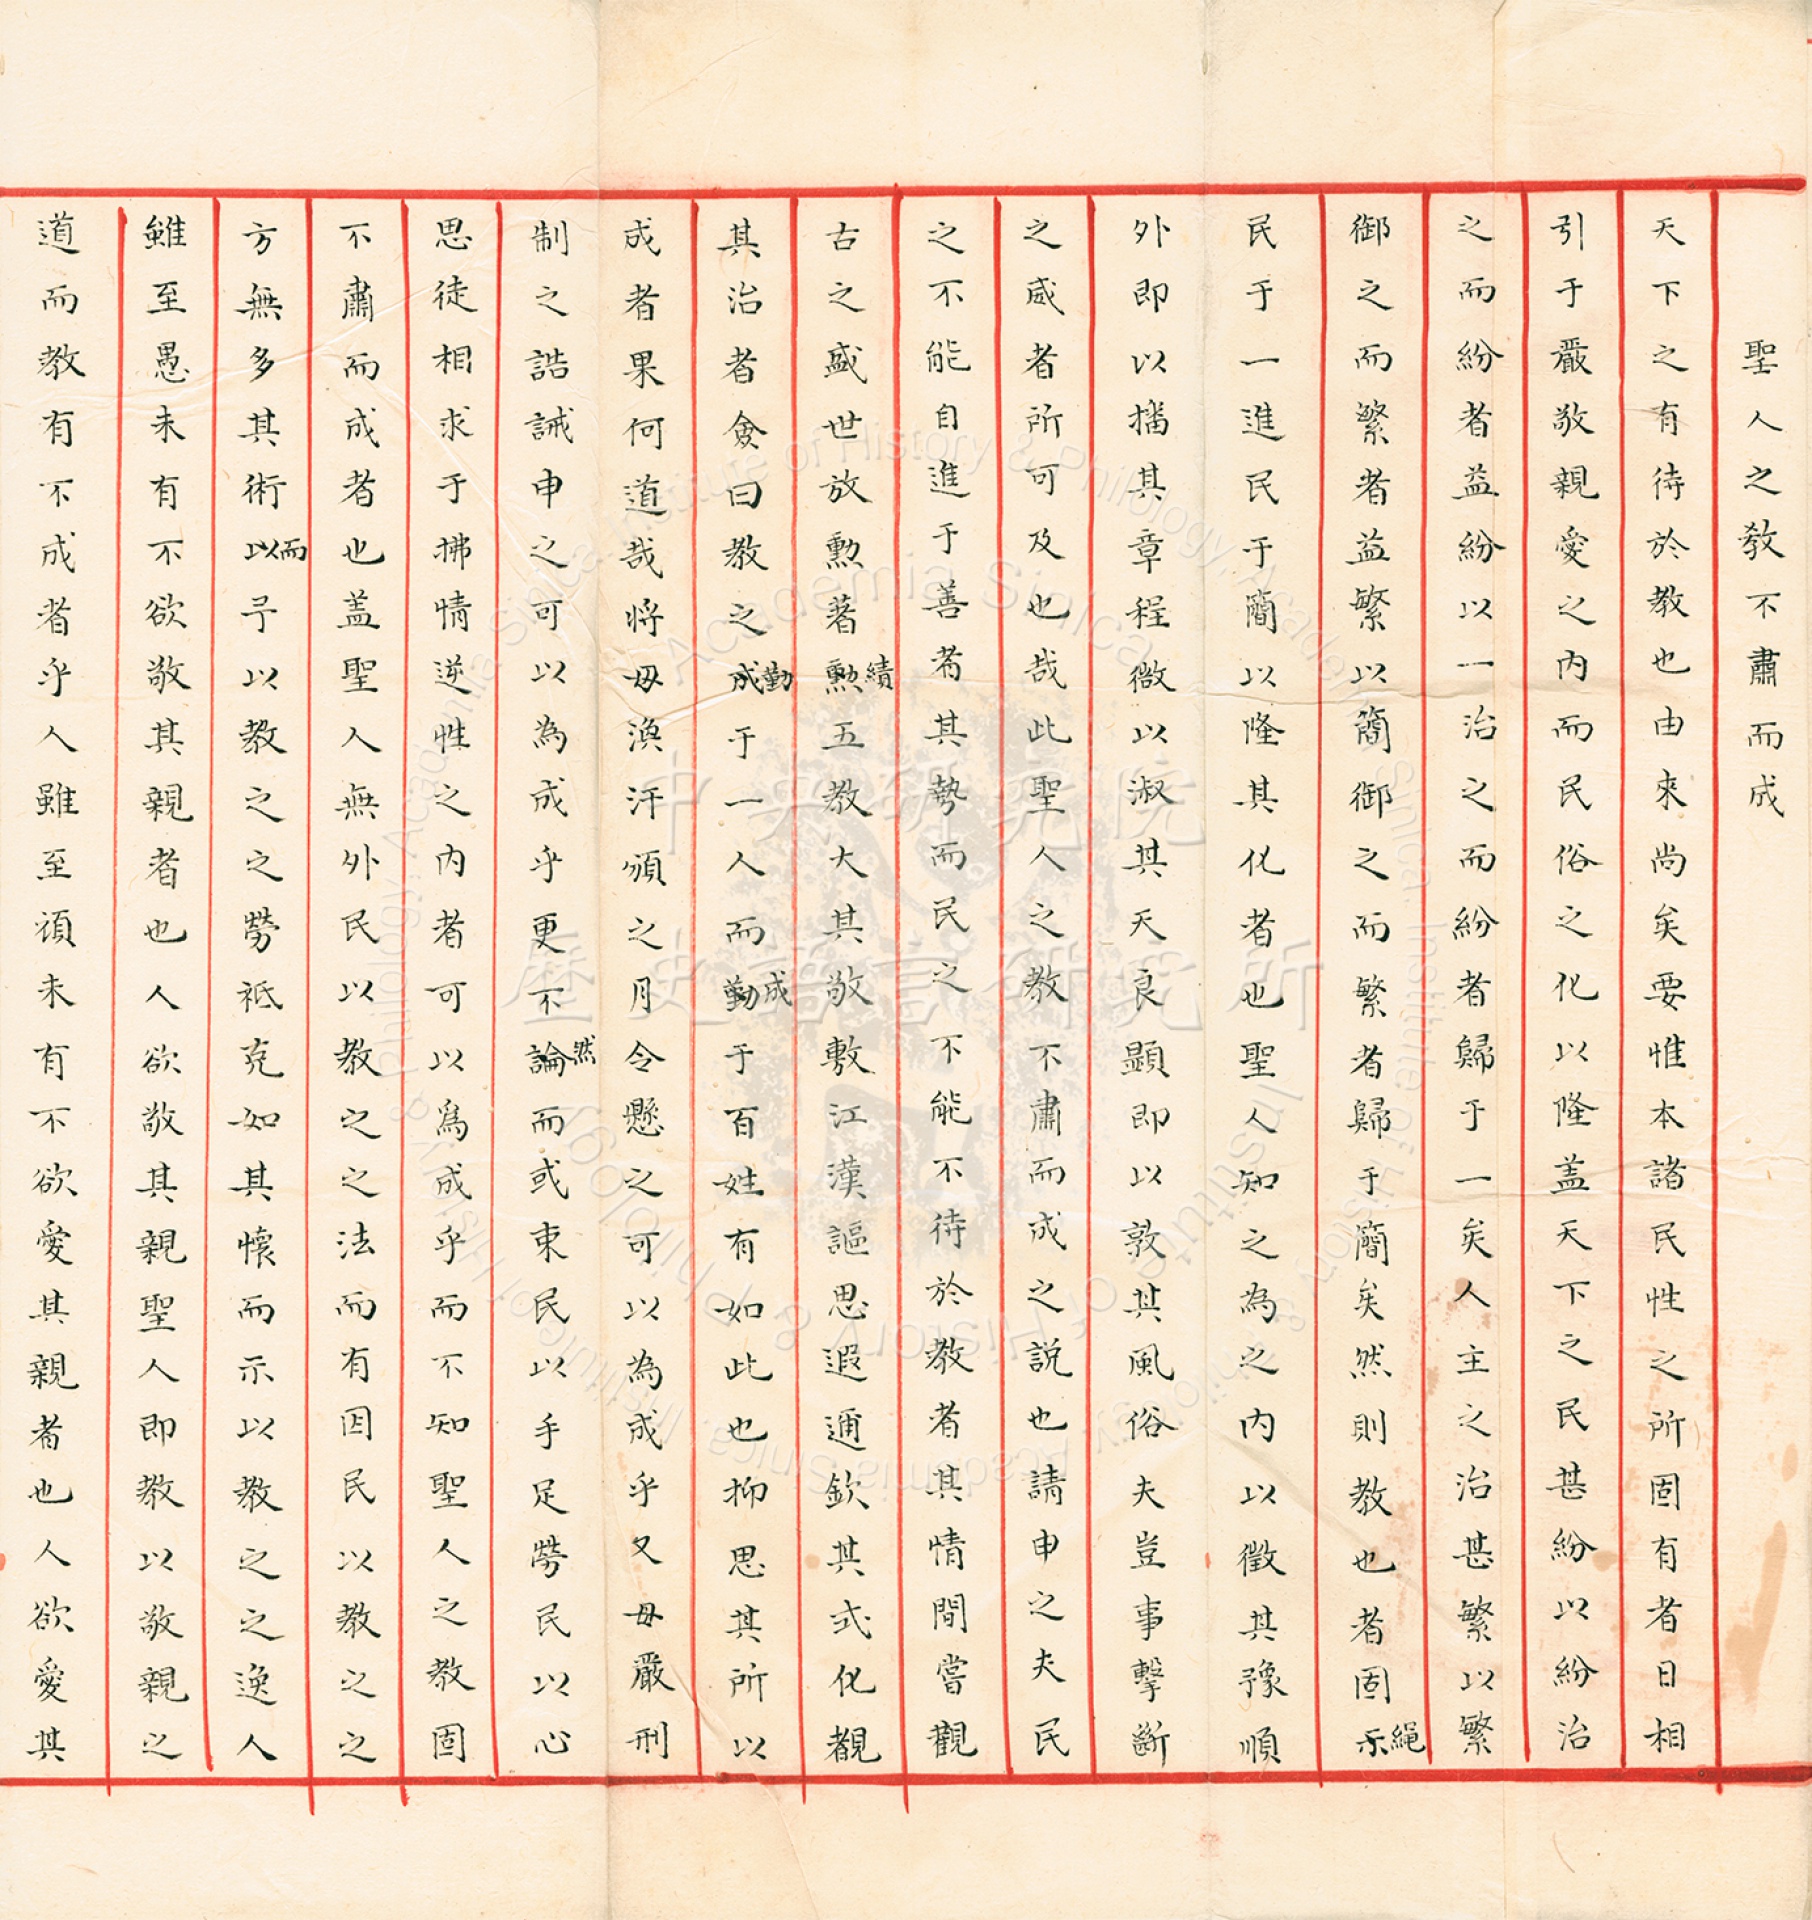 聖人之教不肅而成
天下之有待於教也由來尚矣要惟本諸民性之所固有者日相
引于嚴敬親愛之內而民俗之化以隆盖天下之民甚紛以紛治
之而紛者益紛以一治之而紛者歸于一矣人主之治甚繁以繁
御之而繁者益繁以簡御之而繁者歸于簡矣然則教也者固示繩
民于一進民于簡以隆其化者也聖人知之為之內以徵其豫順
外即以播其章程微以淑其天良顯即以敦其風俗夫豈事擊斷
之威者所可及也哉此聖人之教不肅而成之説也請申之夫民
之不能自進于善者其勢而民之不能不待於教者其情間嘗觀
古之盛世放勲著勲績五教大其敬敷江漢謳思遐邇欽其式化覩
其治者僉曰教之成勤于一人而勤成于百姓有如此也抑思其所以
成者果何道哉将毋渙汗頒之月令懸之可以為成乎又毋嚴刑
制之誥誡申之可以為成乎更不論然而或束民以手足勞民以心
思徒相求于拂情逆性之內者可以爲成乎而不知聖人之教固
不肅而成者也盖聖人無外民以教之之法而有因民以教之之
方無多其術以而予以教之之勞祇克如其懷而示以教之之逸人
雖至愚未有不欲敬其親者也人欲敬其親聖人即教以敬親之
道而教有不成者乎人雖至頑未有不欲愛其親者也人欲愛其
中央研究院
歷史語言研究所
Academia Sinica
Institute of History & Philology, Academia Sinica